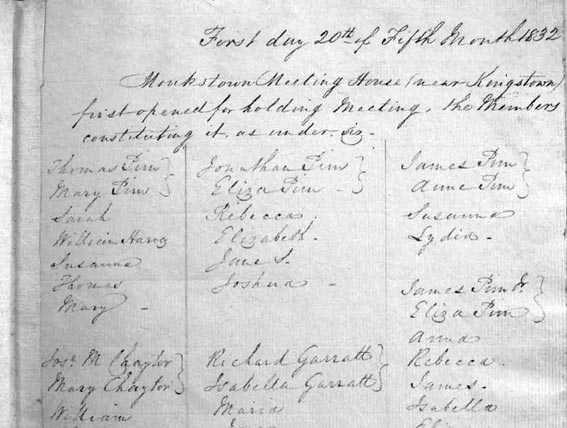 First day 20th of Fifth Month 1832
Monkstown Meeting House (near Kingstown)
first opened for holding Meeting, the Members
constituting it, as under. viz.
Thomas Pim
Mary Pim
Sarah
William Harvey
Susanna
Thomas
Mary
Josh. M Chaytor
Mary Chaytor
William
Jonathan Pim
Eliza Pim
Rebecca
Elizabeth
Jane S.
Joshua
Richard Garratt
Isabella Garratt
Maria
James Pim
Anne Pim
Susanna
Lydia
James Pim Jr.
Eliza Pim
Anna
Rebecca
James
Isabella